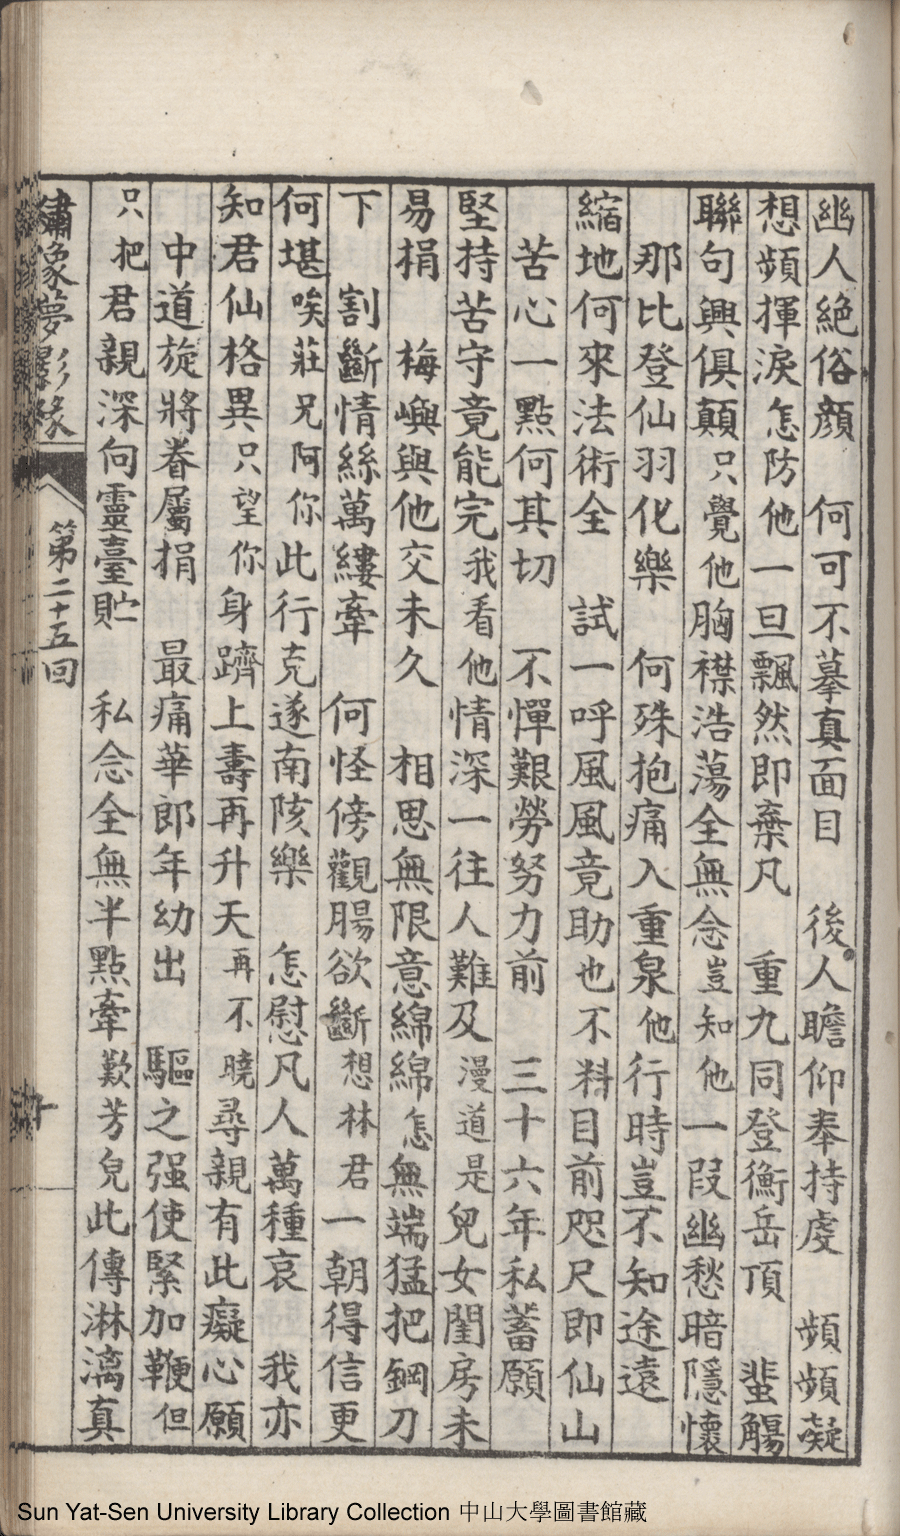 幽人絕俗顏　何可不摹真面目　後人瞻仰奉持虔　頻頻凝
想頻揮淚怎防他一旦飄然即棄凡　重九同登衡岳頂　蜚觴
聯句興俱顛只覺他胸襟浩蕩全無念豈知他一叚幽愁暗隱懷
那比登仙羽化樂　何殊抱痛入重泉他行時豈不知途遠
縮地何來法術全　試一呼風風竟助也不料目前咫尺即仙山
苦心一點何其切　不憚艱勞努力前　三十六年私蓄願
堅持苦守竟能完我看他情深一往人難及漫道是兒女閨房未
易捐　梅嶼與他交未久　相思無限意綿綿怎無端猛把鋼刀
下　割斷情絲萬縷牽　何怪傍觀腸欲斷想林君一朝得信更
何堪唉莊兄阿你此行克遂南陔樂　怎慰凡人萬種哀　我亦
知君仙格異只望你身躋上壽再升天再不曉尋親有此癡心願
中道旋將眷屬捐　最痛華郎年幼出　驅之强使緊加鞭但
只把君親深向靈臺貯　私念全無半點牽歎芳兒此傳淋漓真
繡像夢影緣
第二十五回
Sun Yat-Sen University Library Collection 中山大學圖書館藏